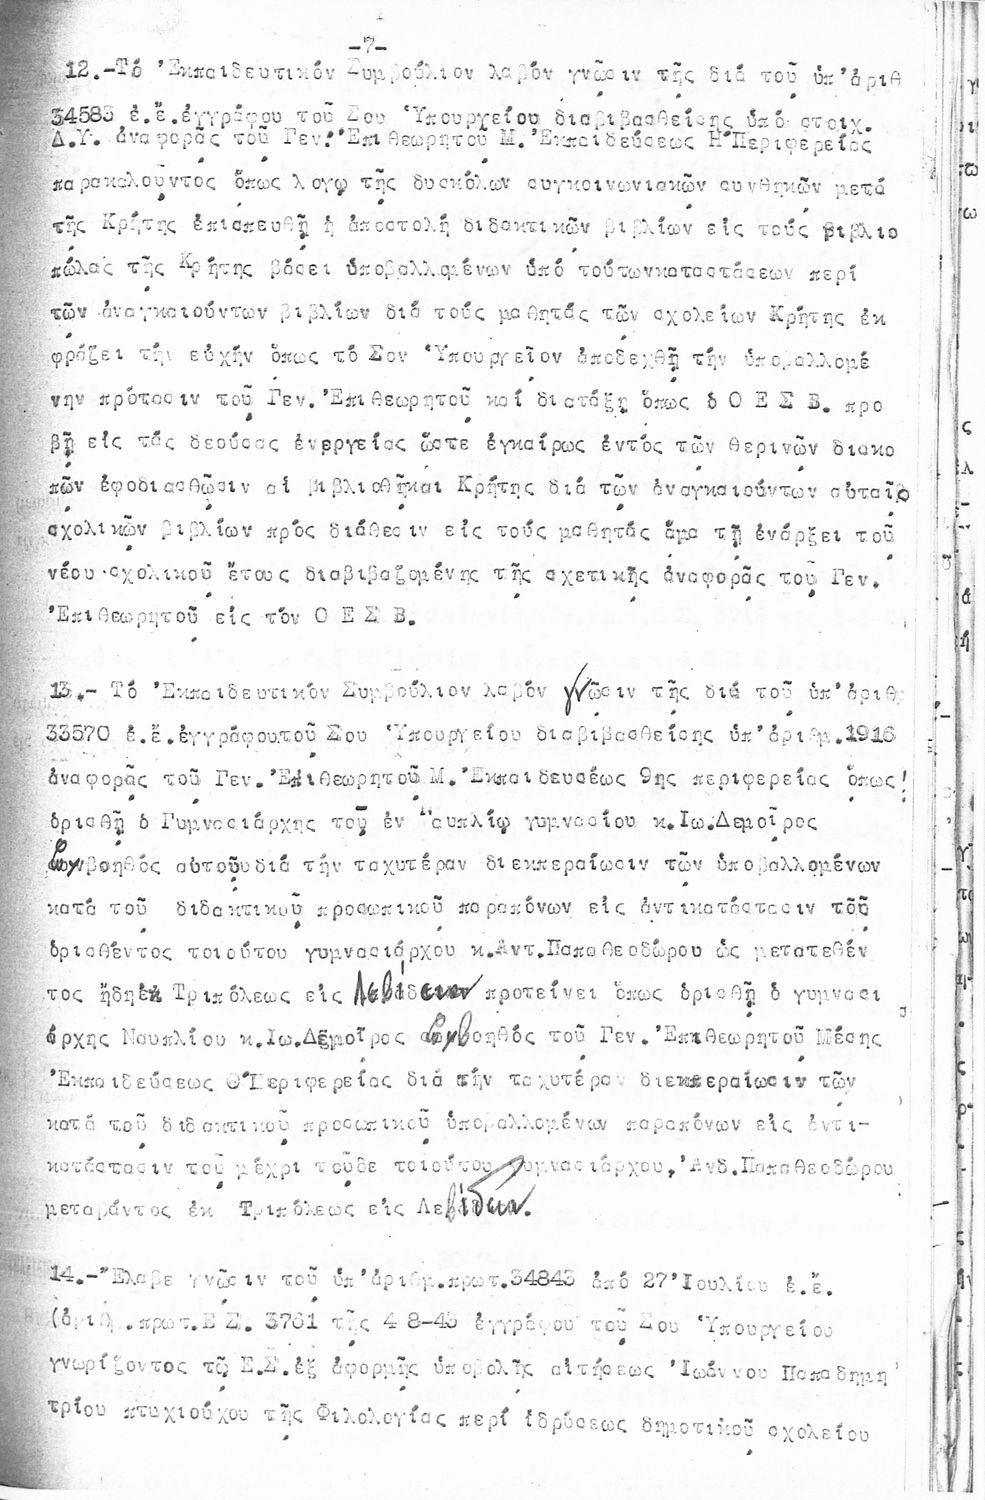 -7-
12.-Τό Ἐκπαιδευτικόν Συμβούλιον λαβόν γνῶσιν τῆς διά τοῦ ὑπ'ἀριθ
34583 ἐ.ἔ.ἐγγράφου τοῦ Σου Ὑπουργείου διαβιβασθείσης ὑπό στοιχ.
Δ.Υ. ἀναφορᾶς τοῦ Γεν.Ἐπιθεωρητοῦ Μ.Ἐκπαιδεύσεως Η'Περιφερείας
παρακαλοῦντος ὅπως λογῳ τῆς δυσκόλων συγκοινωνιακῶν συνθηκῶν μετά
τῆς Κρήτης ἐπισπευθῇ ἡ ἀποστολή διδακτικῶν βιβλίων εἰς τούς βιβλιο
πώλας τῆς Κρήτης βάσει ὑποβαλλομένων ὑπό τούτωνκαταστάσεων περί
τῶν ἀναγκαιούντων βιβλίων διά τούς μαθητάς τῶν σχολείων Κρήτης ἐκ
φράζει τήν εὐχήν ὅπως τό Σον Ὑπουργεῖον ἀποδεχθῇ τήν ὑποβαλλομέ
νην πρότασιν τοῦ Γεν.Ἐπιθεωρητοῦ καί διατάξῃ ὅπως ὁ Ο Ε Σ Β. προ
βῇ εἰς τάς δεούσας ἐνεργείας ὥστε ἐγκαίρως ἐντός τῶν θερινῶν διακο
πῶν ἐφοδιασθῶσιν αἱ βιβλιοθῆκαι Κρήτης διά τῶν ἀναγκαιούντων αὐταῖς
σχολικῶν βιβλίων πρός διάθεσιν εἰς τούς μαθητάς ἅμα τῇ ἐνάρξει τοῦ
νέου σχολικοῦ ἔτους διαβιβαζομένης τῆς σχετικῆς ἀναφορᾶς τοῦ Γεν.
Ἐπιθεωρητοῦ εἰς τόν Ο Ε Σ Β.
13.- Τό Ἐκπαιδευτικόν Συμβούλιον λαβόν γνῶσιν τῆς διά τοῦ ὑπ'ἀριθμ
33570 ἐ.ἔ.ἐγγράφουτοῦ Σου Ὑπουργείου διαβιβασθείσης ὑπ'ἀριθμ.1916
ἀναφορᾶς τοῦ Γεν.Ἐπιθεωρητοῦ Μ.Ἐκπαιδευσέως 9ης περιφερείας ὅπως
ὁρισθῇ ὁ Γυμνασιάρχης τοῦ ἐν Ναυπλίῳ γυμνασίου κ.Ιω.Δεμοῖρος
βοηθός αὐτοῦδιά τήν ταχυτέραν διεκπεραίωσιν τῶν ὑποβαλλομένων
κατά τοῦ διδακτικοῦ προσωπικοῦ παραπόνων εἰς ἀντικατάστασιν τοῦ
ὁρισθέντος τοιούτου γυμνασιάρχου κ.Αντ.Παπαθεοδώρου ὡς μετατεθέν
τος ἤδηἐκ Τριπόλεως εἰς Λεβάδειαν προτείνει ὅπως ὁρισθῇ ὁ γυμνασι
άρχης Ναυπλίου κ.Ιω.Δεμοῖρος βοηθός τοῦ Γεν.Ἐπιθεωρητοῦ Μέσης
Ἐκπαιδεύσεως Θ'Περιφερείας διά τήν ταχυτέραν διεκπεραίωσιν τῶν
κατά τοῦ διδακτικοῦ προσωπικοῦ ὑποβαλλομένων παραπόνων εἰς ἀντι-
κατάστασιν τοῦ μέχρι τοῦδε τοιούτου γυμνασιάρχου,Ἀνδ.Παπαθεοδώρου
μεταβάντος ἐκ Τριπόλεως εἰς Λεβάδεια.
14.-Ἔλαβε γνῶσιν τοῦ ὑπ'ἀριθμ.πρωτ.34843 ἀπό 27 Ἰουλίου ἐ.ἔ.
(ἀριθ.πρωτ.Ε Σ. 3761 τῆς 4 8-43 ἐγγράφου τοῦ Σου Ὑπουργείου
γνωρίζοντος τῷ Ε.Σ.ἐξ ἀφορμῆς ὑποβολῆς αἰτήσεως Ἰωάννου Παπαδημη
τρίου πτυχιούχου τῆς Φιλολογίας περί ἱδρύσεως δημοτικοῦ σχολείου